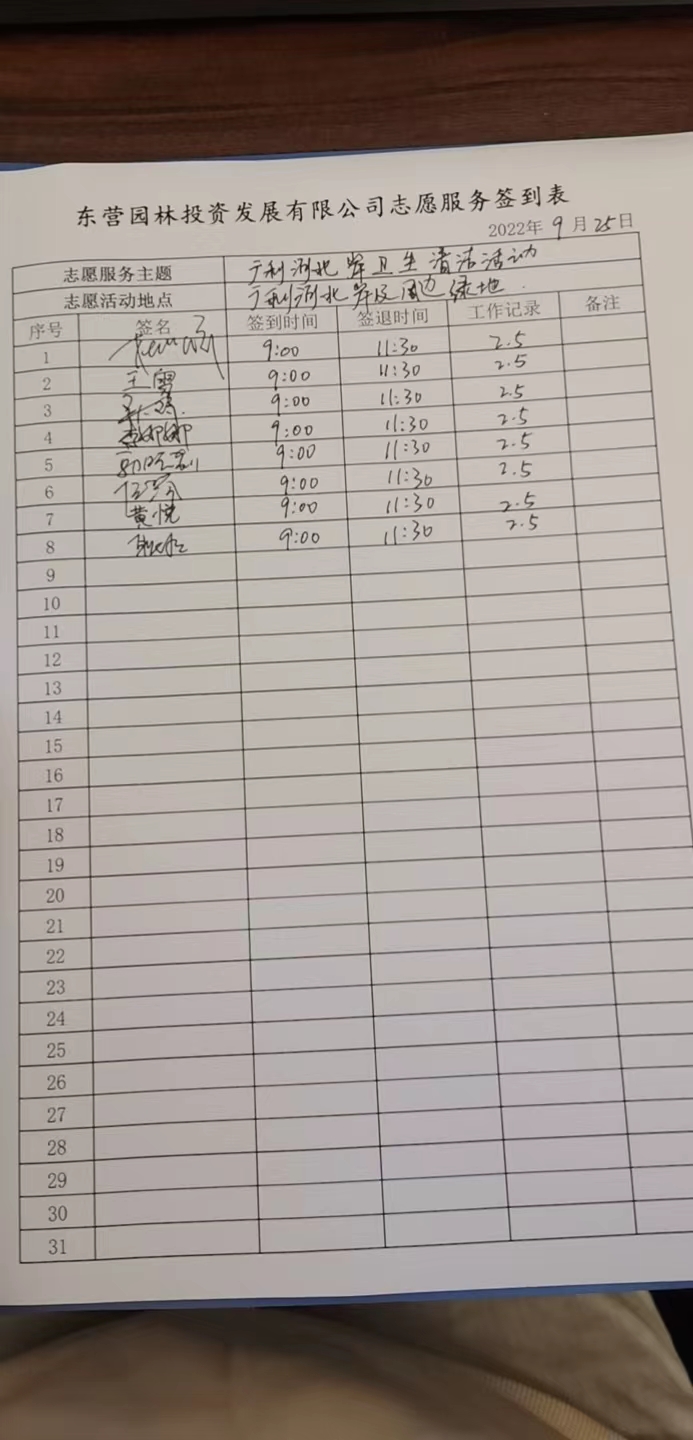 东营园林投资发展有限公司志愿服务签到表
2022年 9 月 25 日
志愿服务主题 广利河北岸卫生清洁活动
志愿活动地点 广利河北岸及周边绿地.
序号 签名 签到时间 签退时间 工作记录 备注
1 9:00 11:30 2.5
2 王雪 9:00 11:30 2.5
3 9:00 11:30 2.5
4 李娜娜 9:00 11:30 2.5
5 9:00 11:30 2.5
6 9:00 11:30 2.5
7 黄悦 9:00 11:30 2.5
8 9:00 11:30 2.5
9
10
11
12
13
14
15
16
17
18
19
20
21
22
23
24
25
26
27
28
29
30
31